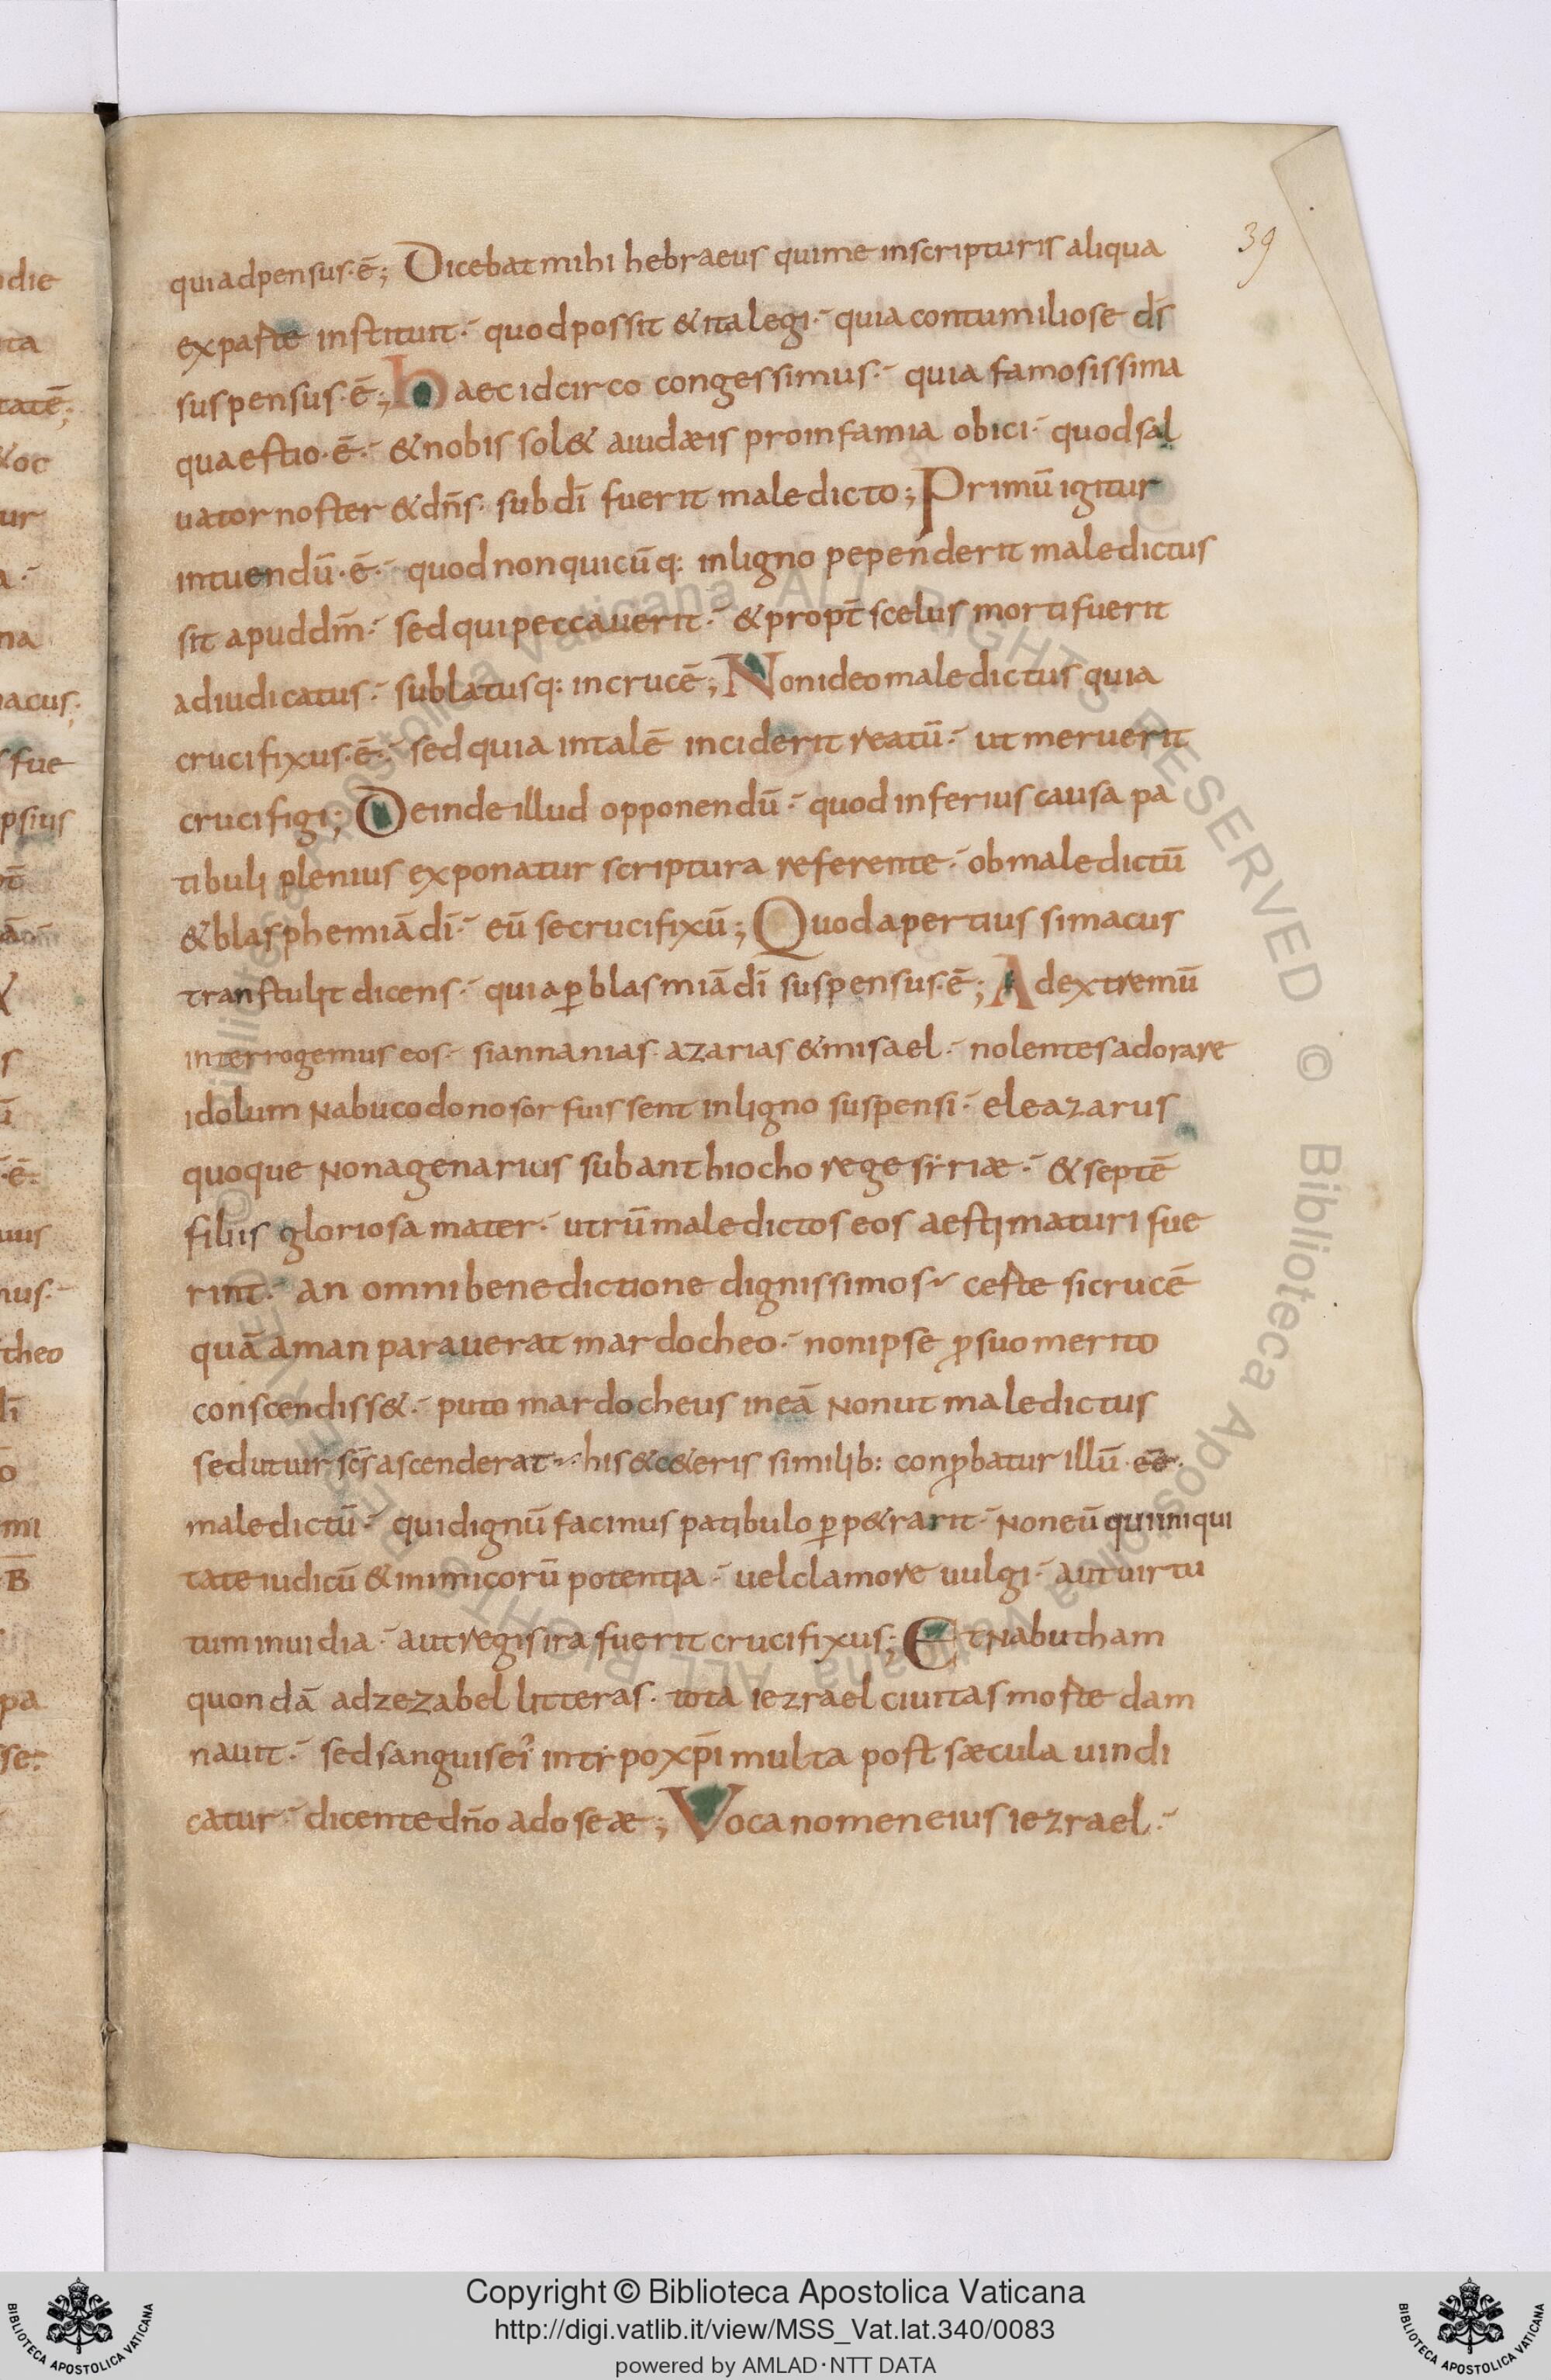 39
quiadpensus·ē; Dicebat mihi hebraeus qui me inscripturis aliqua
exparte instituit· quod possit & ita legi· quia contumiliose d̄s
suspensus·ē; haec idcirco congessimus· quia famosissima
quaestio·ē· & nobis sol& aiudæis proinfamia obici· quod sal
uator noster & dn̄s· sub dī fuerit maledicto; Primū igitur
intuendū·ē· quod non quicūq: inligno pependerit maledictus
sit apud dm̄· sed qui peccauerit· & propt̄ scelus morti fuerit
adiudicatus· sublatusq: in crucē; Non ideo maledictus quia
crucifixus·ē· sed quia intalē inciderit reatū· ut meruerit
crucifigi; Deinde illud opponendū· quod inferius causa pa
tibuli plenius exponatur scriptura referente· ob maledictū
& blasphemiā dī· eū se crucifixū; Quod apertius simacus
transtulit dicens· quia ꝑ blasmiā dī suspensus·ē; Ad extremū
interrogemus eos· si annanias· azarias & misael· nolentes adorare
idolum nabucodonosor fuissent inligno suspensi· eleazarus
quoque nonagenarius sub anthiocho rege sẏriæ· & septē
filiis gloriosa mater· utrū maledictos eos aestimaturi fue
rint· an omni benedictione dignissimos· certe si crucē
quā aman parauerat mardocheo· non ipse ꝓ suo merito
conscendiss&· puto mardocheus in eā non ut maledictus
sed ut uir sc̄s ascenderat· his & c&eris similib: conꝓbatur illū·ēē·
maledictū· qui dignū facinus patibulo ꝑp&rarit· non eū qui iniqui
tate iudicū & inimicorū potentia· uel clamore uulgi· aut uirtu
tum inuidia· aut regis ira fuerit crucifixus; Et nabutham
quondā ad zezabel litteras· tota iezrael ciuitas morte dam
nauit· sed sanguis ei' in tẏpo xp̄i multa post sæcula uindi
catur· dicente dn̄o ad oseæ; Voca nomen eius iezrael·
Copyright © Biblioteca Apostolica Vaticana
http://digi.vatlib.it/view/MSS_Vat.lat.340/0083
powered by AMLAD·NTT DATA
BIBLIOTECA APOSTOLICA VATICANA
BIBLIOTECA APOSTOLICA VATICANA